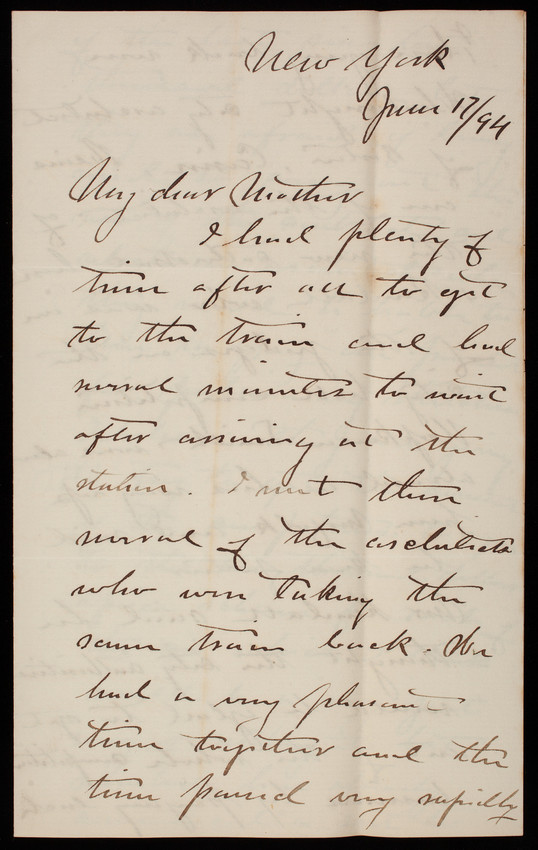 New York
June 17/94
My dear Mother
I had plenty of
time after all to get
to the train and had
several minutes to wait
after arriving at the
station. I met there
several of the architects
who were taking the
same train back. We
had a very pleasant
time together and the
time passed very rapidly